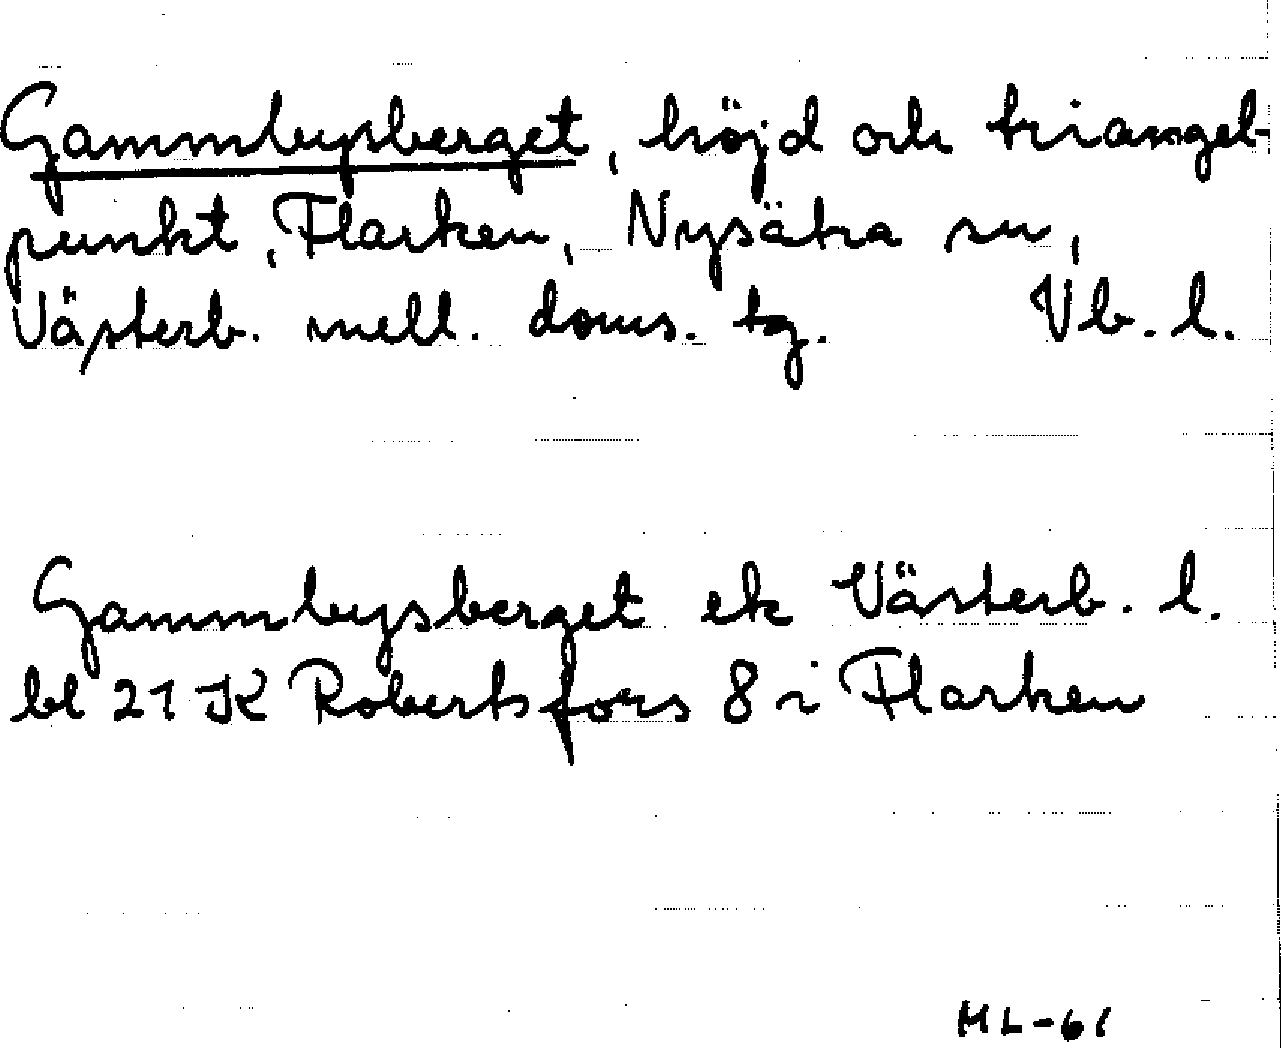 Gammbysberget, höjd och triangel-
punkt, Flarken, Nysätra sn,
Västerb. mell. doms. tg. Vb. l.
Gammbysberget ek Västerb. l.
bl 21 K Robertsfors 8 i Flarken
HL-61